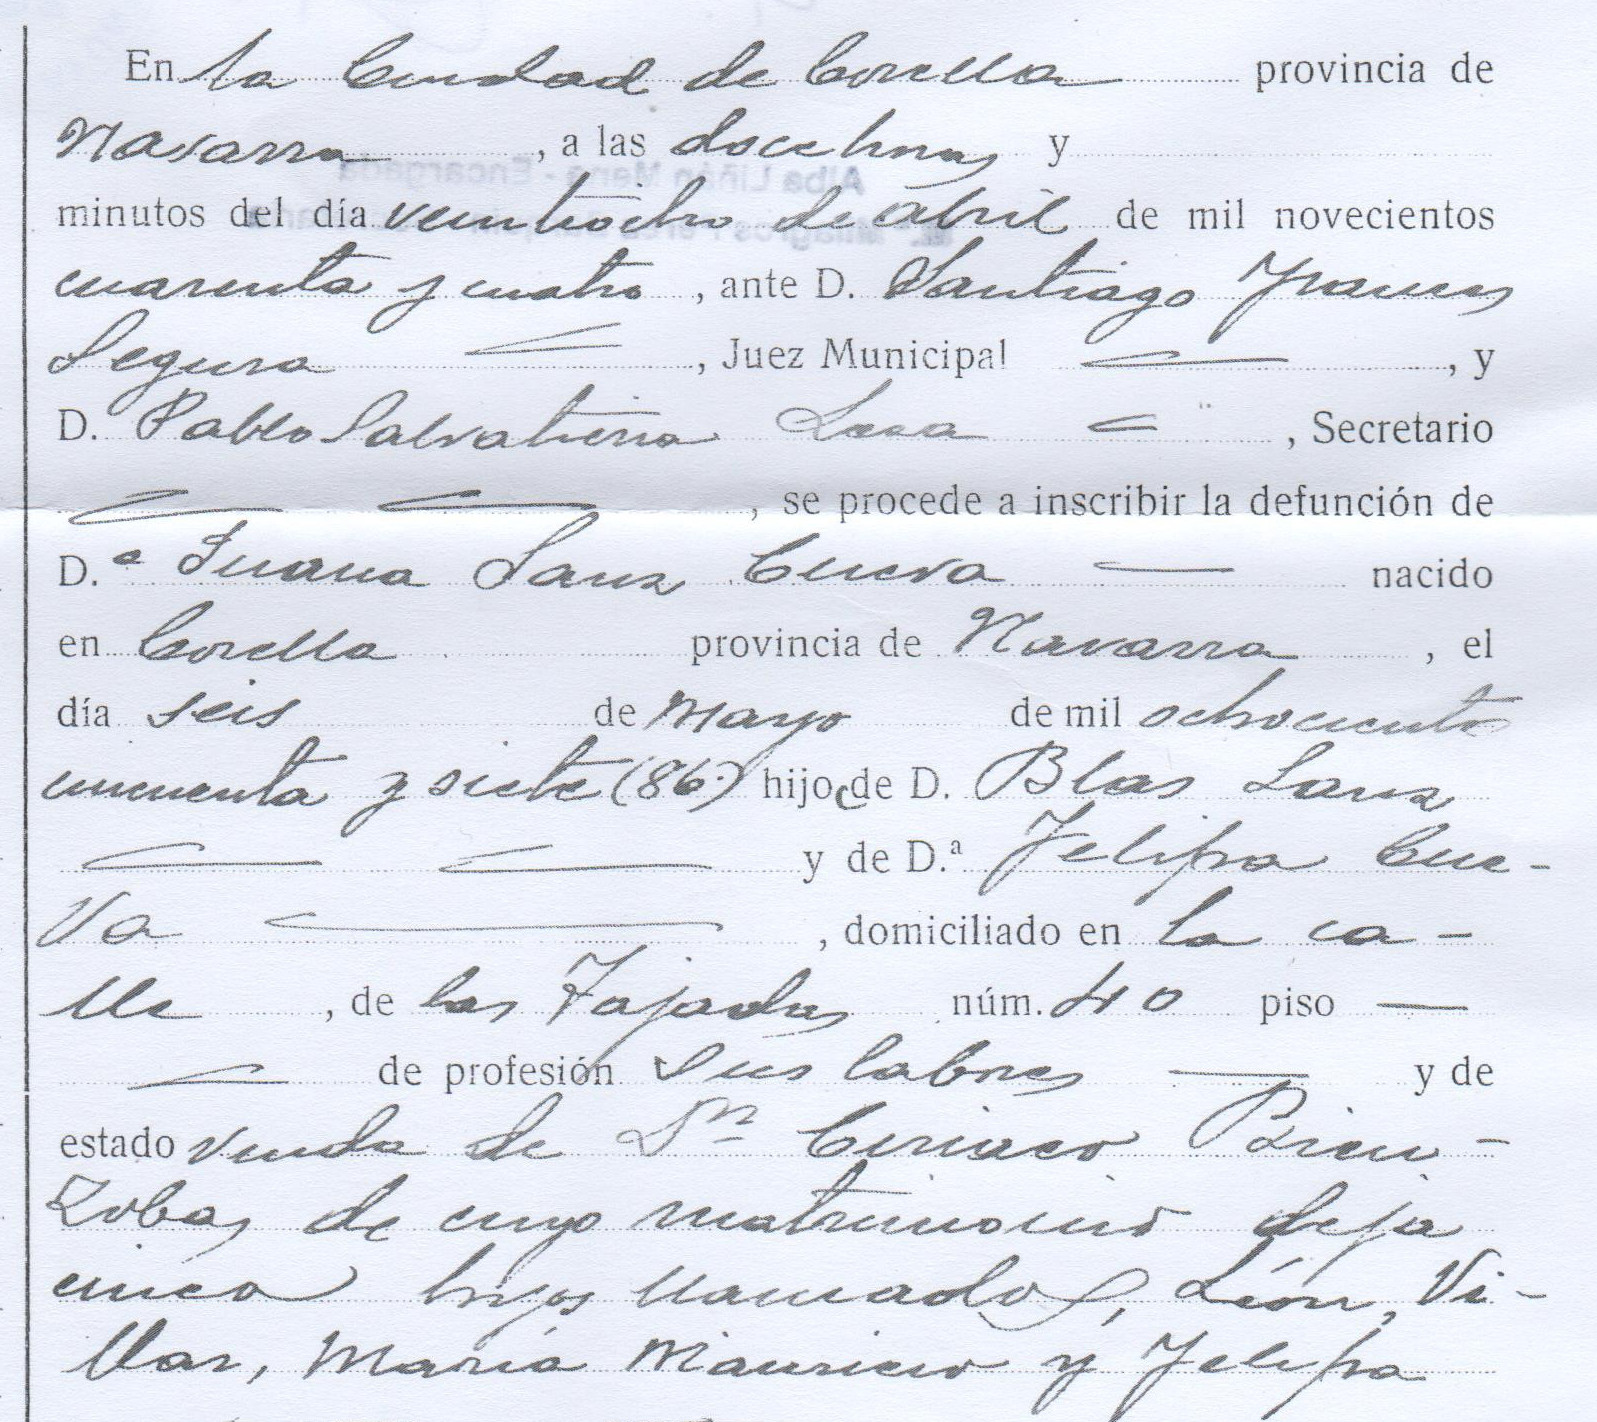 En la Ciudad de Corella provincia de
Navarra, a las doce horas y
minutos del día veintiocho de abril de mil novecientos
cuarenta y cuatro, ante D. Santiago
Segura, Juez Municipal, y
D. Pablo Salvatierra, Secretario
, se procede a inscribir la defunción de
D.ª Juana Sanz Cueva nacido
en Corella provincia de Navarra, el
día seis de Mayo de mil ochocientos
cincuenta y siete (86) hijo de D. Blas Sanz
y de D.ª Felipa Cue-
va, domiciliado en la ca-
lle, de las Fajadas núm. 40 piso —
de profesión sus labores y de
estado viuda de Dn Ciriaco Bien-
zobas de cuyo matrimonio deja
cinco hijos llamados, León, Vi-
llar, María Mauricio y Felipa